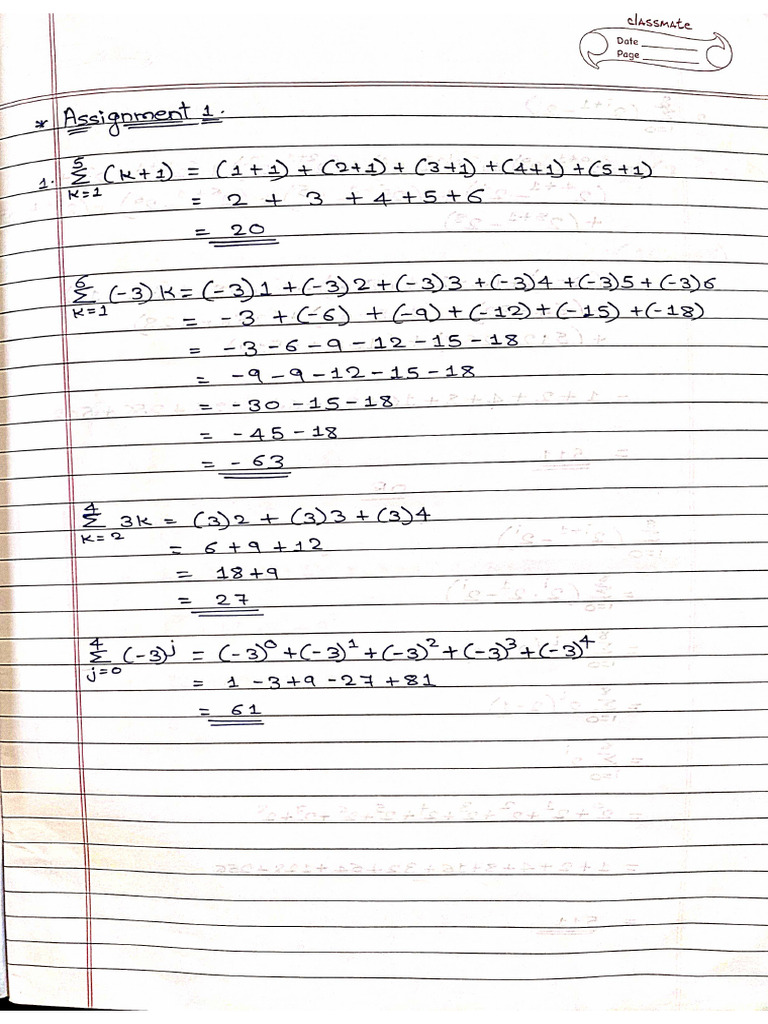 classmate
Date
Page
* Assignment 1.
1. 5 Σ k=1 (k+1) = (1+1) + (2+1) + (3+1) + (4+1) + (5+1)
= 2 + 3 + 4 + 5 + 6
= 20
6 Σ k=1 (-3) k = (-3)1 + (-3)2 + (-3)3 + (-3)4 + (-3)5 + (-3)6
= -3 + (-6) + (-9) + (-12) + (-15) + (-18)
= -3 - 6 - 9 - 12 - 15 - 18
= -9 - 9 - 12 - 15 - 18
= -30 - 15 - 18
= -45 - 18
= -63
4 Σ k=2 3k = (3)2 + (3)3 + (3)4
= 6 + 9 + 12
= 18 + 9
= 27
4 Σ j=0 (-3)^j = (-3)^0 + (-3)^1 + (-3)^2 + (-3)^3 + (-3)^4
= 1 - 3 + 9 - 27 + 81
= 61